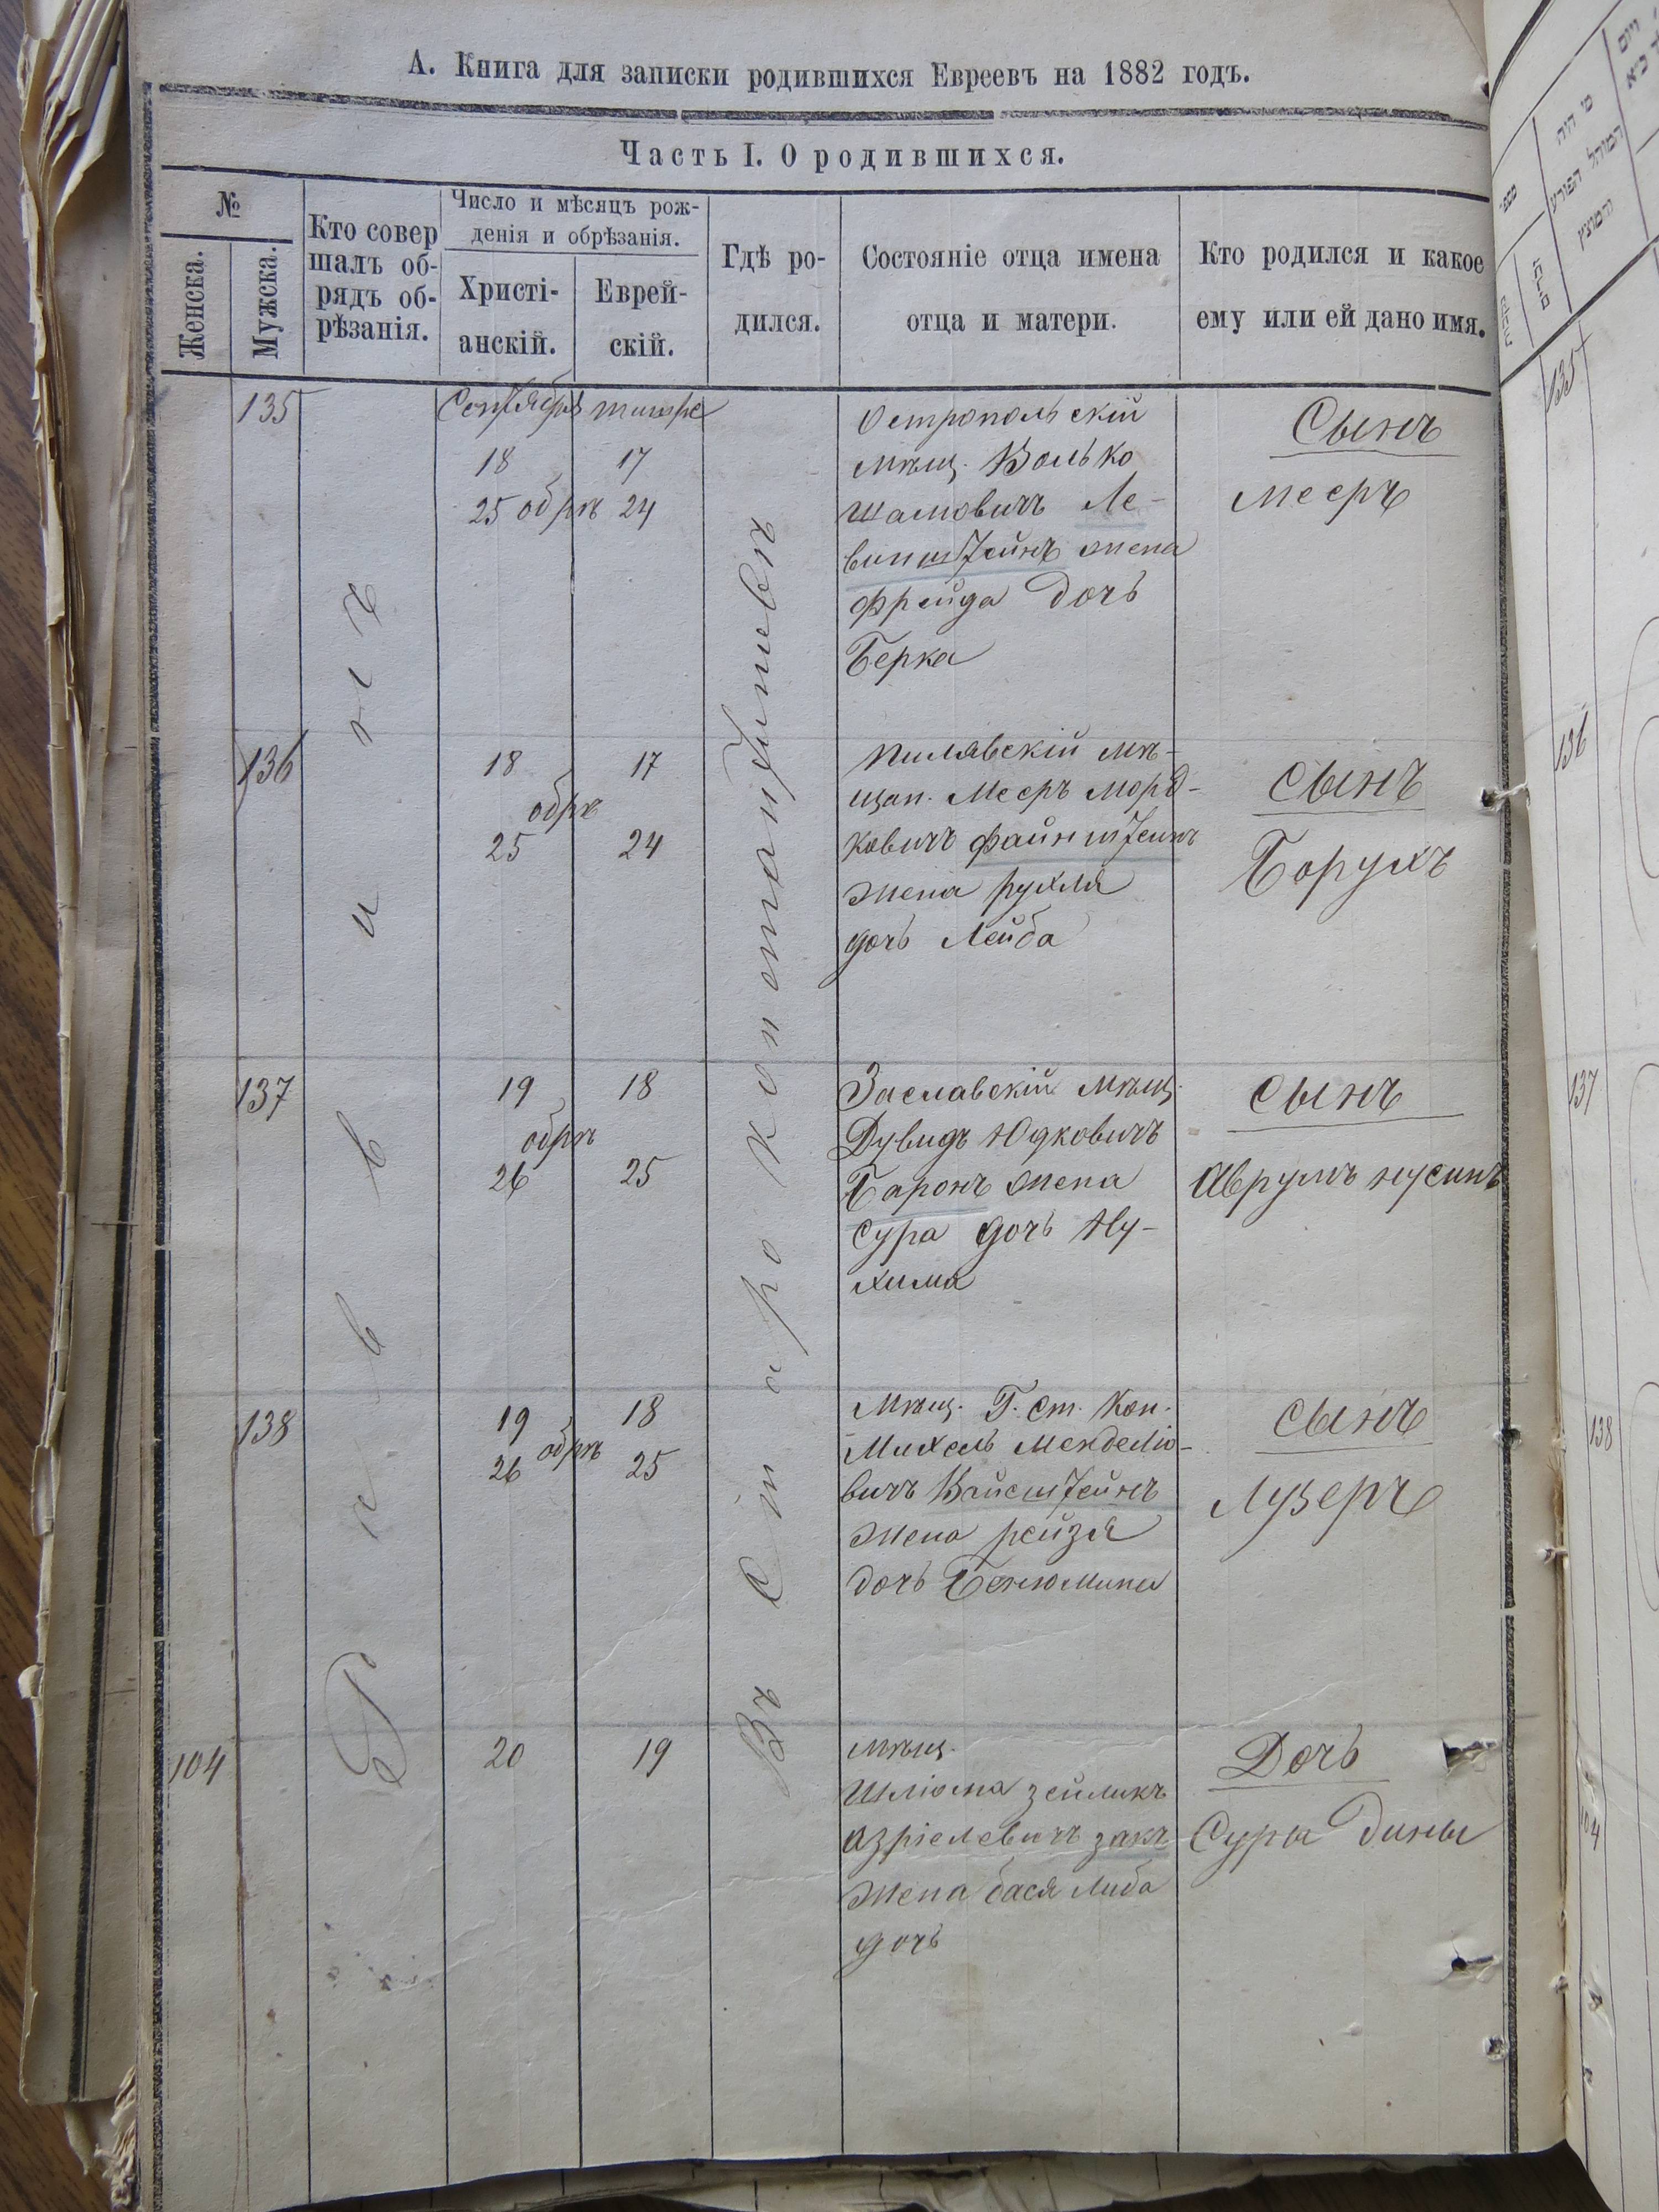 А. Книга для записки родившихся Евреевъ на 1882 годъ.
Часть I. О родившихся.
№
Женска.
Мужска.
Кто совер
шалъ об-
рядъ об-
рѣзанія.
Число и мѣсяцъ рож-
денія и обрѣзанія.
Христі-
анскій.
Еврей-
скій.
Гдѣ ро-
дился.
Состояніе отца имена
отца и матери.
Кто родился и какое
ему или ей дано имя.
Раввинъ
Въ Староконстантиневѣ
135
Сентября тишре
18 17
25 обрѣ 24
Остропольскій
мѣщ. Волько
Шамовичъ Ле-
винштейнъ жена
фрейда дочь
Берка
Сынъ
Мееръ
136
18 17
обрѣ
25 24
Пилявскій мѣ-
щан. Мееръ Морд-
ковичъ файнштейнъ
жена рухля
дочь Лейба
Сынъ
Борухъ
137
19 18
обрѣ
26 25
Заславскій мѣщ.
Дувидъ Юдковичъ
Баронъ жена
Сура дочь Ну-
хима
Сынъ
Аврумъ нусинъ
138
19 18
26 обрѣ 25
Мѣщ. Г. Ст. Кон.
Михель Менделіо-
вичъ Вайсштейнъ
жена рейзя
дочь Бенюмина
Сынъ
Лузеръ
104
20 19
мѣщ.
Шліома зейликъ
азріелевичъ закъ
жена бася либа
дочь
Дочь
Суры дины
135
136
137
138
104